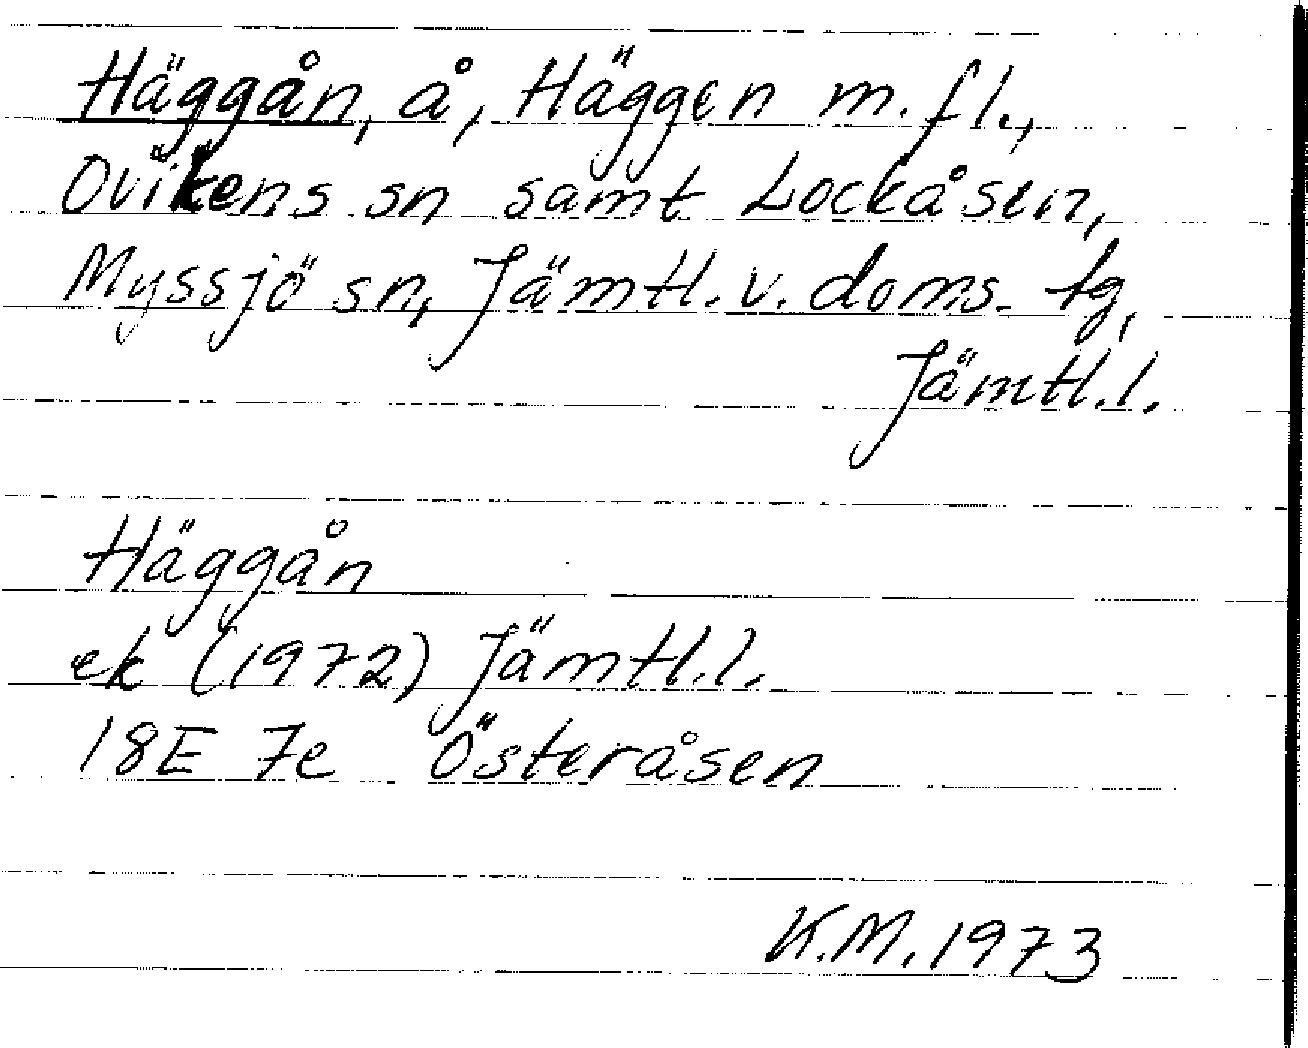 Häggån, å, Häggen m. fl.,
Ovikens sn samt Lockåsen,
Myssjö sn, Jämtl. v. doms. tg,
Jämtl. l.
Häggån
ek (1972) Jämtl. l.
18E 7e Österåsen
K.M. 1973